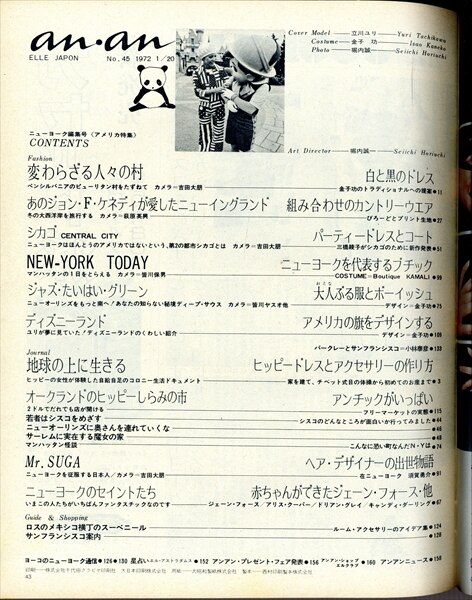 an・an
ELLE JAPON No. 45 1972 1/20
Cover Model — 立川ユリ — Yuri Tachikawa
Costume — 金子 功 — Isao Kaneko
Photo — 堀内誠一 — Seiichi Horiuchi
Art Director — 堀内誠一 — Seiichi Horiuchi
ニューヨーク編集号〈アメリカ特集〉
CONTENTS
Fashion
変わらざる人々の村 白と黒のドレス
ペンシルバニアのピューリタン村をたずねて カメラ=吉田大朋 金子功のトラディショナルへの提案●11
あのジョン・F・ケネディが愛したニューイングランド 組み合わせのカントリーウエア
冬の大西洋岸を旅行する カメラ=萩原英興 びろーどとプリント生地●27
シカゴ CENTRAL CITY パーティードレスとコート
ニューヨークはほんとうのアメリカではないという、第2の都市シカゴとは カメラ=吉田大朋 三橋綾子がシカゴのために新作発表●51
NEW-YORK TODAY ニューヨークを代表するブチック
マンハッタンの1日をとらえる カメラ=皆川保男 COSTUME=Boutique KAMALI●99
ジャズ・たいはい・グリーン 大人ぶる服とボーイッシュ
おとな
ニューオーリンズをもっと南へ!あなたの知らない秘境ディープ・サウス カメラ=皆川ヤスオ他 デザイン=金子功●75
ディズニーランド アメリカの旗をデザインする
ユリが夢に見ていた!ディズニーランドのくわしい紹介 デザイン=金子功●109
バークレーとサンフランシスコ=小林泰彦●133
Journal
地球の上に生きる ヒッピードレスとアクセサリーの作り方
ヒッピーの女性が体験した自給自足のコロニー生活ドキュメント 家を建て、チベット式日の体操から初めてのお産まで●3
オークランドのヒッピーしらみの市 アンチックがいっぱい
2ドルでだれでも店が開ける フリーマーケットの実態●115
若者はシスコをめざす シスコのどんなところが面白いか行ってみました●44
ニューオーリンズに奥さんを連れていくな ●46
サーレムに実在する魔女の家 ●48
マンハッタン怪談 こんなに恐い町なんだN・Yは●74
Mr. SUGA ヘア・デザイナーの出世物語
ニューヨークを征服する日本人/カメラ=吉田大朋 在ニューヨーク 須賀勇介●91
ニューヨークのセイントたち 赤ちゃんができたジェーン・フォース・他
いまこの人たちがいちばんファンタスチックなのです ジェーン・フォース/アリス・クーパー/ドリアン・グレイ/キャンディ・ダーリング●67
Guide & Shopping
ロスのメキシコ横丁のスーベニール ルーム・アクセサリーのアイデア集●124
サンフランシスコ案内 ●128
ヨーコのニューヨーク通信●126●130 星占い=エル・アストラダムス●152 アンアン・プレゼント・フェア発表●156 アンアンショップ エルクラブ●160 アンアンニュース●158
43